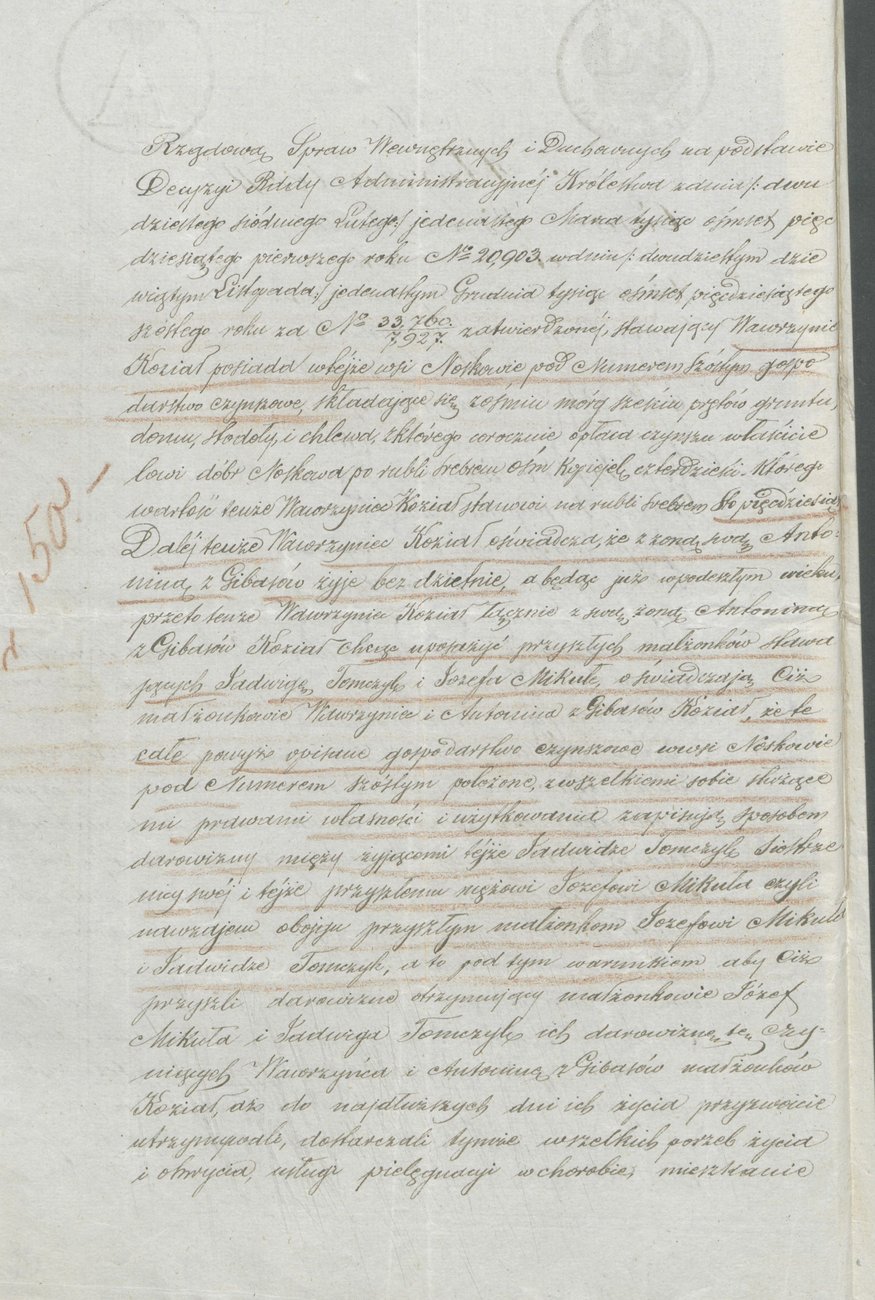 Rządową Spraw Wewnętrznych i Duchownych na podstawie
Decyzyi Rády Administracyjnéj Królestwa z dnia /: dwu
dziestego siódmego Lutego :/ jedenastego Marca tysiąc ośmset pięć
dziesiątego pierwszego roku No 20,903 w dniu /: dwudziestym dzie
wiątym Listopada :/ jedenastym Grudnia tysiąc ośmset pięćdziesiątego
szóstego roku za No 33,760./7,927. zatwierdzonéj, stawający Wawrzyniec
Koział posiada w tejże wsi Noskowie pod Numerem szóstym gospo
darstwo czynszowe, składające się z ośmiu mórg sześciu prętów gruntu,
domu, stodoły, i chlewa, z którego corocznie opłaca czynszu właścicie
lowi dóbr Noskowa po rubli srebrem ośm kopiejek czterdzieści. Którego
wartość tenże Wawrzyniec Koział stanowi na rubli srebrem Sto pięćdziesiąt
Daléj tenże Wawrzyniec Kozioł oświadcza, że z żoną swą Anto-
niną z Gibasów żyje bezdzietnie, a będąc już w podeszłym wieku,
przeto tenże Wawrzyniec Kozioł łącznie z swą żoną Antoniną
z Gibasów Kozioł chcąc uposażyć przyszłych małżonków stawa
jących Jadwigę Tomczyk i Józefa Mikułę, oświadczają Ciż
małżonkowie Wawrzyniec i Antonina z Gibasów Kozioł, że te
całe powyż opisane gospodarstwo czynszowe we wsi Noskowie
pod Numerem szóstym położone, z wszelkiemi sobie służące
mi prawami własności i użytkowania zapisują sposobem
darowizny między żyjącemi téjże Jadwidze Tomczyk siostrze
nicy swéj i téjże przyszłemu mężowi Józefowi Mikuła czyli
nawzajem obojgu przyszłym małżonkom Józefowi Mikuła
i Jadwidze Tomczyk, a to pod tym warunkiem aby Ciż
przyszli darowiznę otrzymujący małżonkowie Józef
Mikuła i Jadwiga Tomczyk ich darowiznę tę czy-
niących Wawrzyńca i Antoninę z Gibasów małżonków
Kozioł, aż do najdłuższych dni ich życia przyzwoicie
utrzymywali, dostarczali tymże wszelkich potrzeb życia
i okrycia, usługi pielęgnacyi w chorobie, mieszkanie
150.-